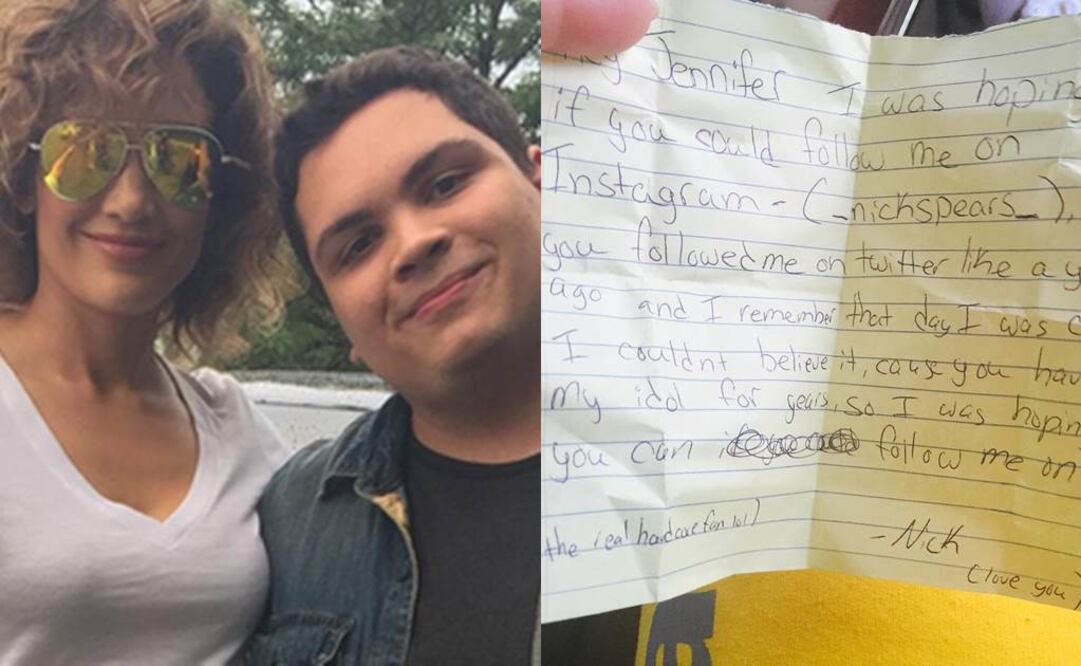 Jennifer I was hoping
if you could follow me on
Instagram - (_nickspears_),
you followed me on twitter like a y
ago and I remember that day I was c
I couldnt believe it, cause you hav
my idol for years, so I was hopin
you can follow me on
the real hardcore fan lol)
- Nick
(love you)